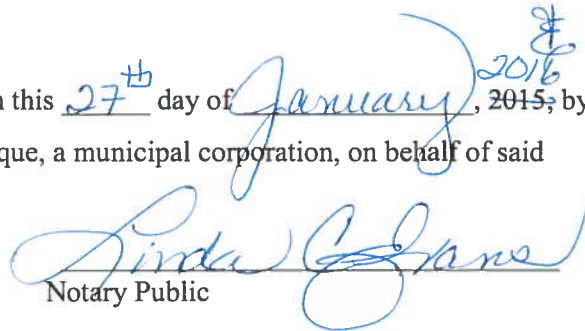 2016
n this 27th day of January, 2015, by
que, a municipal corporation, on behalf of said
Linda C Evans
Notary Public